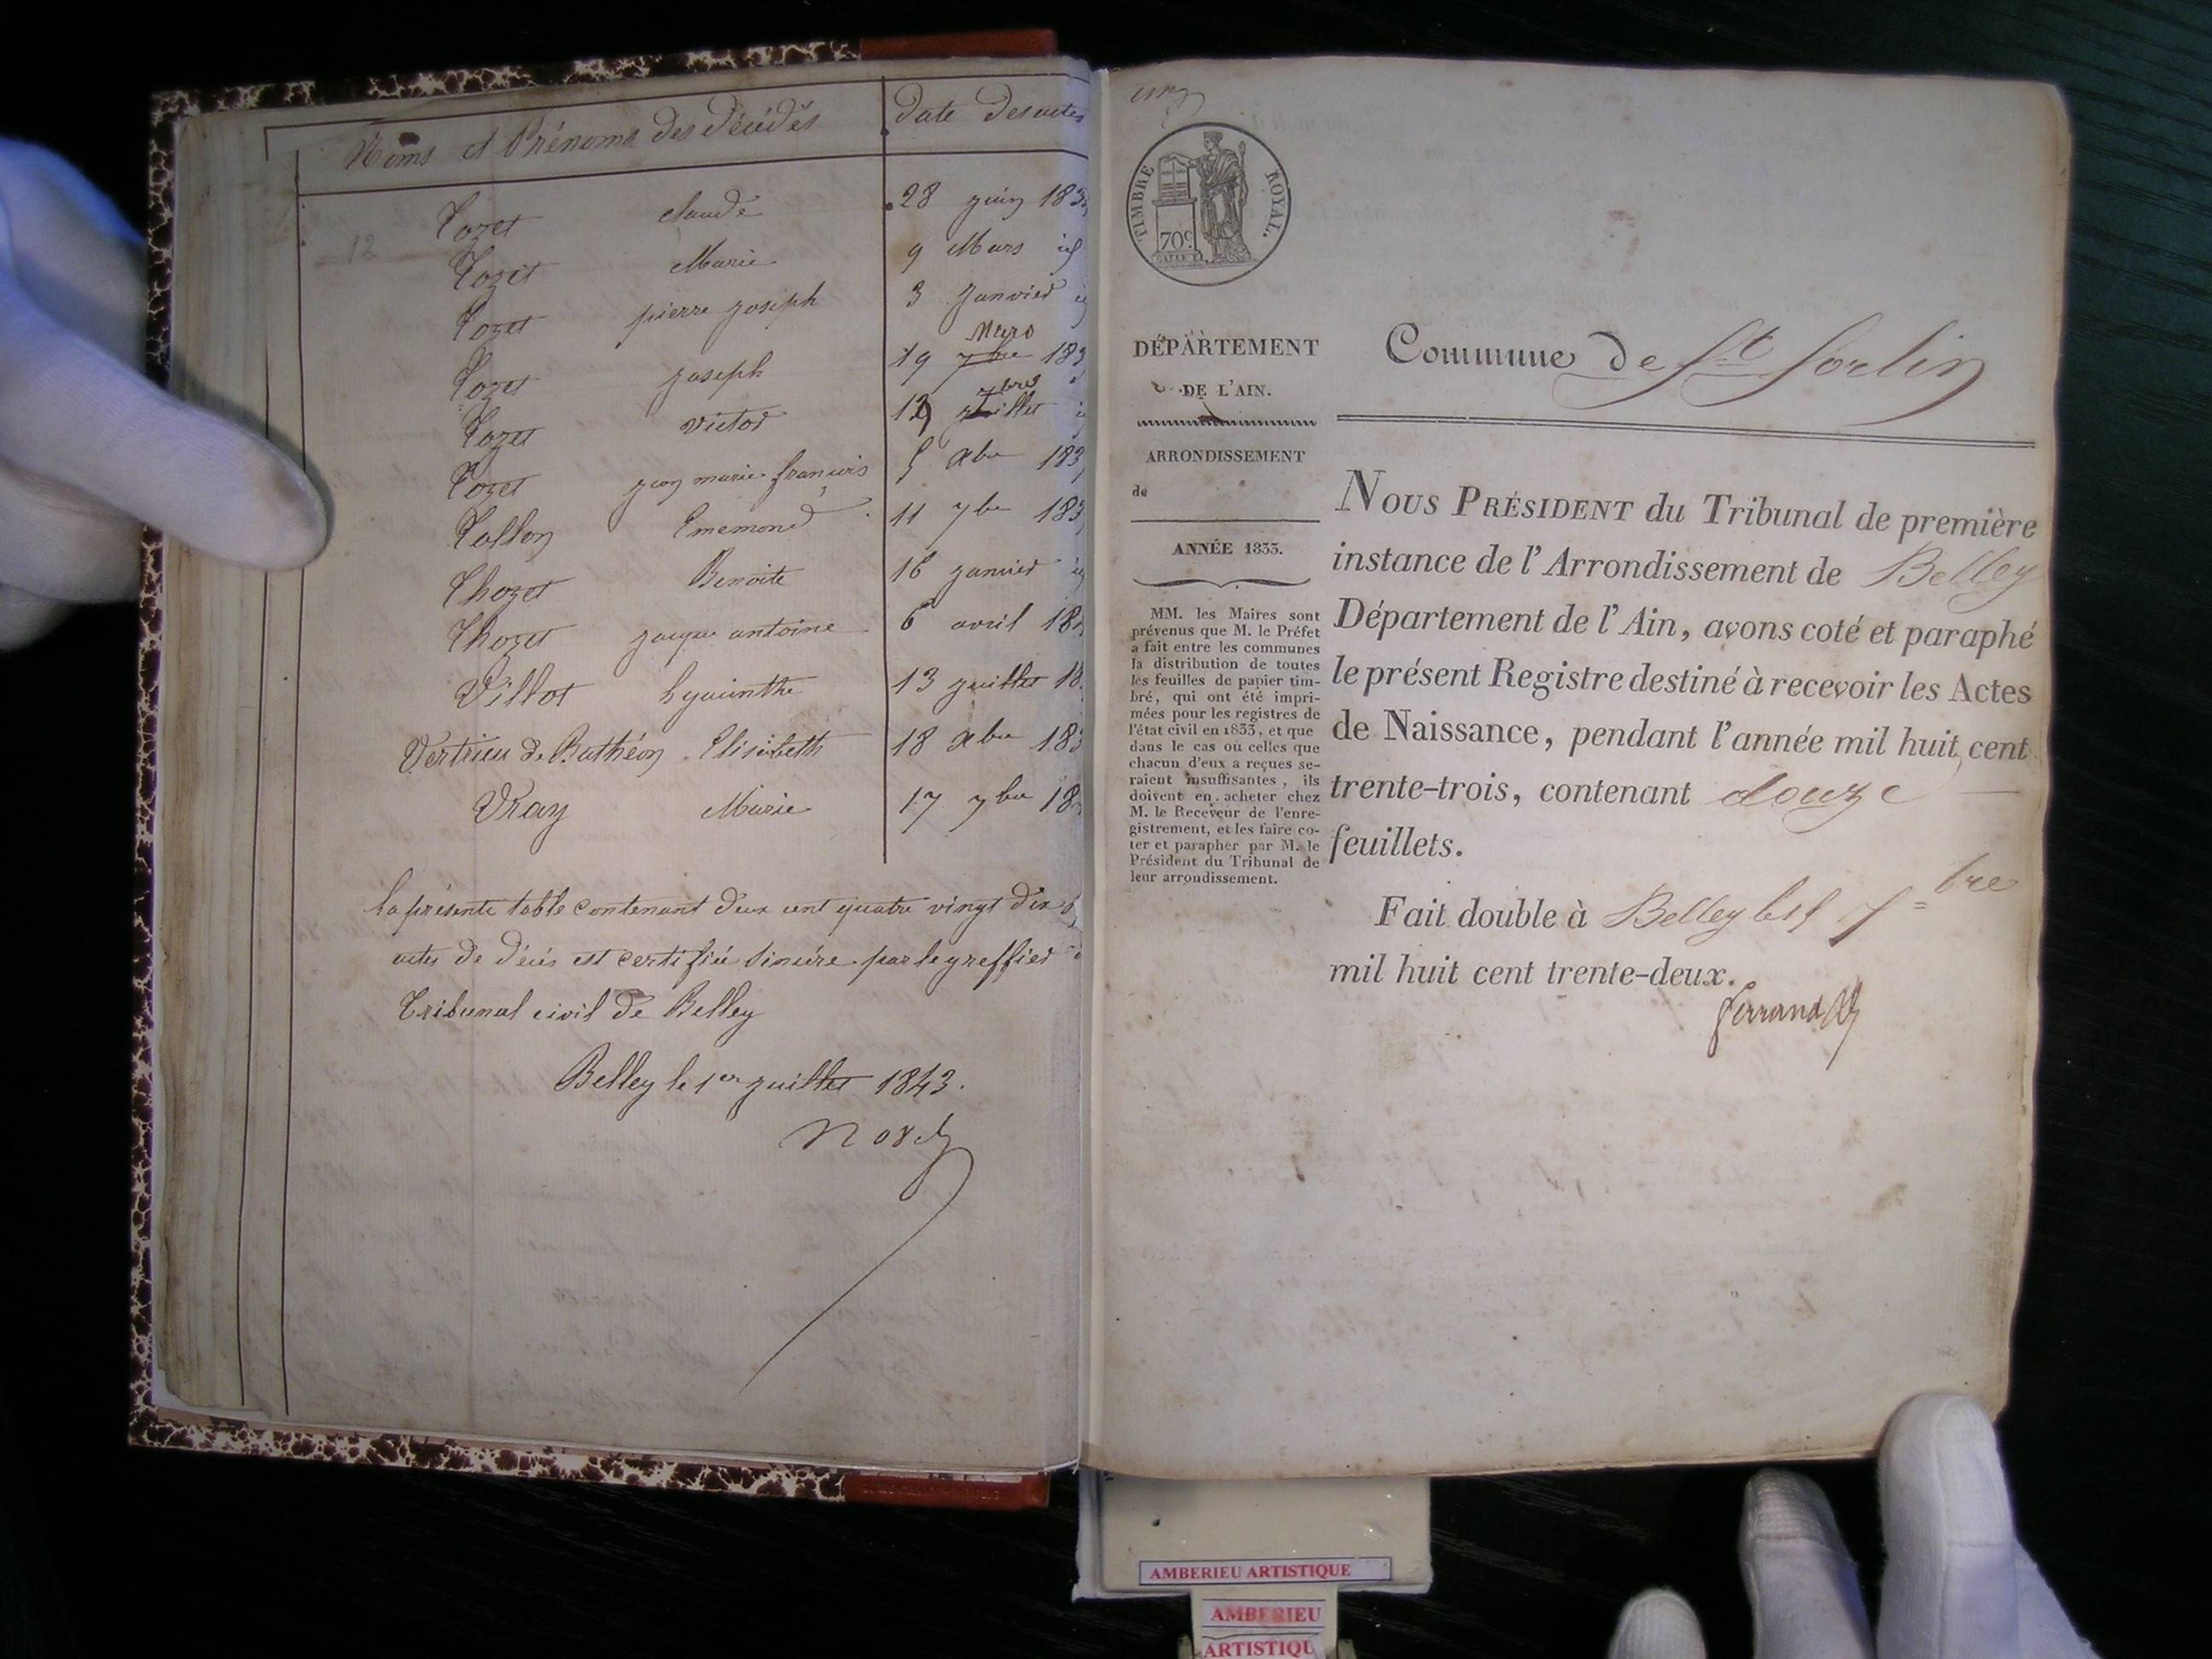 Noms et Prénoms des Décédés
Date des actes
Tozet claude 28 juin 183
Tozet Marie 9 Mars id
Tozet pierre joseph 3 Janvier
Mars
Tozet joseph 19 7bre 183
7bre
Tozet victor 12 juillet
Tozet jean marie françois 5 Xbre 183
Tallon Enemond 11 7bre 183
Thozet Benoite 16 janvier
Thozet jacque antoine 6 avril 18
Villot hyacinthe 13 juillet 18
Vertrieu de Bathéon Elisabeth 18 Xbre 183
Vray Marie 17 7bre 18
la présente table contenant deux cent quatre vingt dix
actes de décès est certifiée sincère par le greffier
Tribunal civil de Belley
Belley le 1er juillet 1843.
12
TIMBRE ROYAL.
70c
DÉPARTEMENT
DE L'AIN.
ARRONDISSEMENT
de
ANNÉE 1833.
MM. les Maires sont
prévenus que M. le Préfet
a fait entre les communes
la distribution de toutes
les feuilles de papier tim-
bré, qui ont été impri-
mées pour les registres de
l'état civil en 1833, et que
dans le cas où celles que
chacun d'eux a reçues se-
raient insuffisantes, ils
doivent en acheter chez
M. le Receveur de l'enre-
gistrement, et les faire co-
ter et parapher par M. le
Président du Tribunal de
leur arrondissement.
Commune de St Sorlin
NOUS PRÉSIDENT du Tribunal de première
instance de l'Arrondissement de Belley
Département de l'Ain, avons coté et paraphé
le présent Registre destiné à recevoir les Actes
de Naissance, pendant l'année mil huit cent
trente-trois, contenant douze
feuillets.
Fait double à Belley le 7bre
mil huit cent trente-deux.
AMBERIEU ARTISTIQUE
AMBERIEU
ARTISTIQU